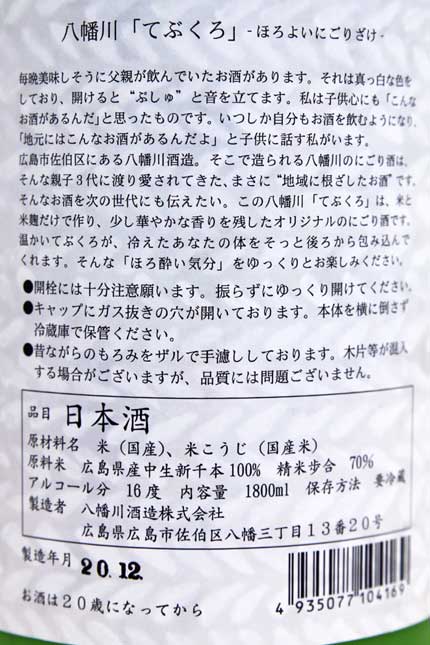 八幡川「てぶくろ」-ほろよいにごりざけ-
毎晩美味しそうに父親が飲んでいたお酒があります。それは真っ白な色を
しており、開けると“ぷしゅ”と音を立てます。私は子供心にも「こんな
お酒があるんだ」と思ったものです。いつしか自分もお酒を飲むようになり、
「地元にはこんなお酒があるんだよ」と子供に話す私がいます。
広島市佐伯区にある八幡川酒造。そこで造られる八幡川のにごり酒は、
そんな親子3代に渡り愛されてきた、まさに“地域に根ざしたお酒”です。
そんなお酒を次の世代にも伝えたい。この八幡川「てぶくろ」は、米と
米麹だけで作り、少し華やかな香りを残したオリジナルのにごり酒です。
温かいてぶくろが、冷えたあなたの体をそっと後ろから包み込んで
くれます。そんな「ほろ酔い気分」をゆっくりとお楽しみください。
●開栓には十分注意願います。振らずにゆっくり開けてください。
●キャップにガス抜きの穴が開いております。本体を横に倒さず
冷蔵庫で保管ください。
●昔ながらのもろみをザルで手濾ししております。木片等が混入
する場合がございますが、品質には問題ございません。
品目 日本酒
原材料名 米（国産）、米こうじ（国産米）
原料米 広島県産中生新千本100% 精米歩合 70%
アルコール分 16度 内容量 1800ml 保存方法 要冷蔵
製造者 八幡川酒造株式会社
広島県広島市佐伯区八幡三丁目13番20号
製造年月 20.12
お酒は20歳になってから
4 935077 104169